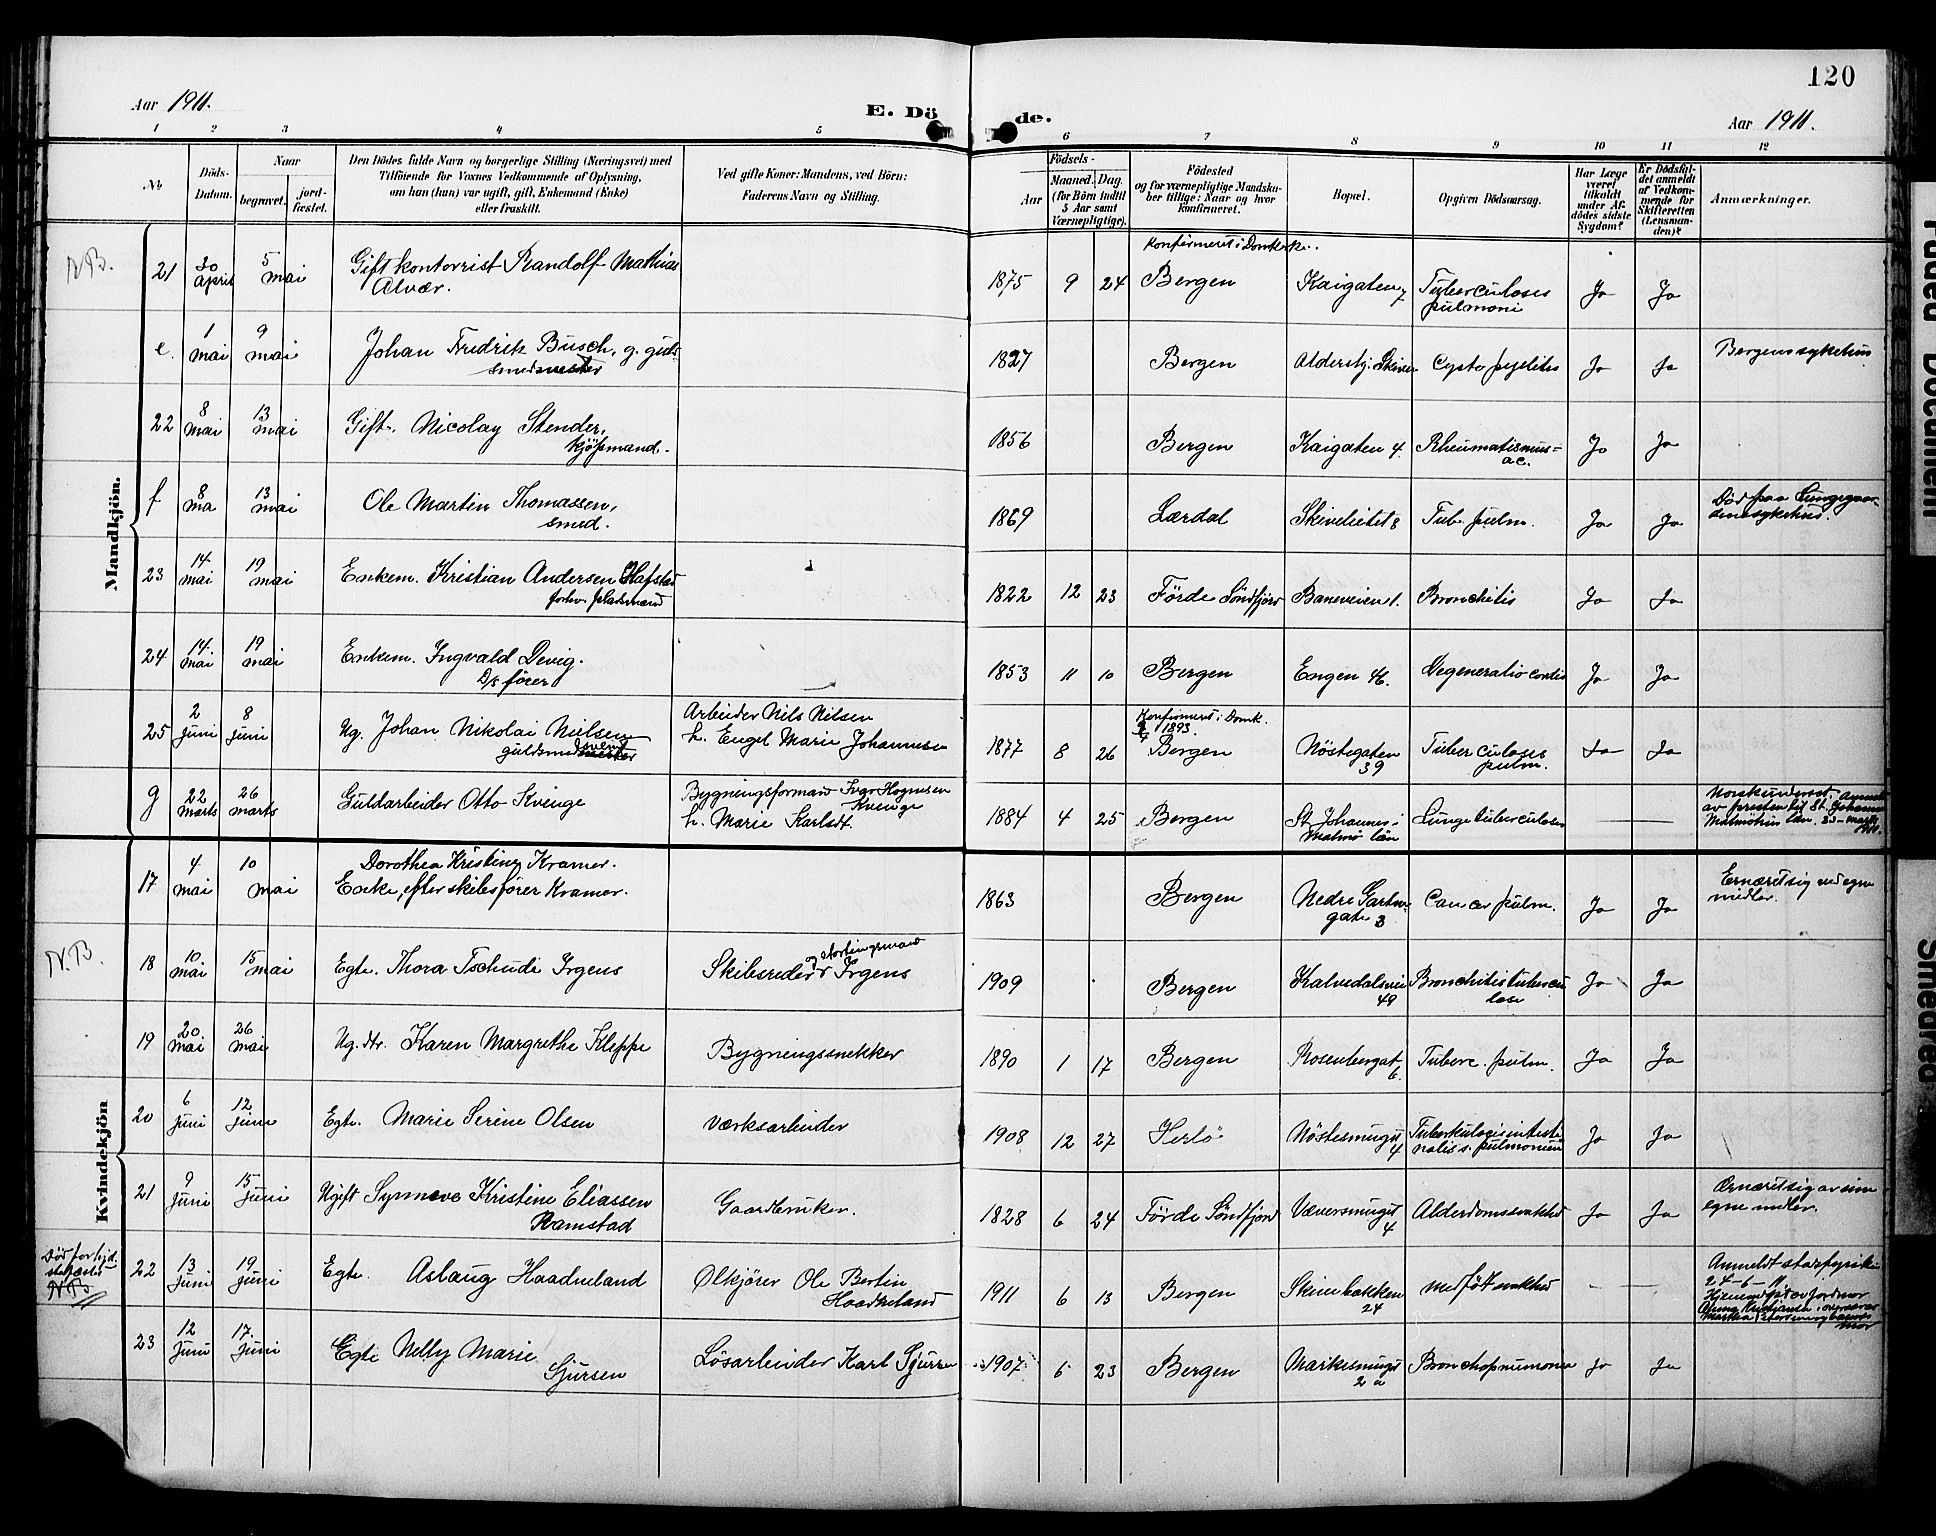 120
Aar 1911.
E. Dö
de.
Aar 1911.
1 2 3 4 5 6 7 8 9 10 11 12
No
Döds-
Datum.
Naar
begravet.
jord-
fæstet.
Den Dödes fulde Navn og borgerlige Stilling (Næringsvei) med
Tilföiende for Voxnes Vedkommende af Oplysning,
om han (hun) var ugift, gift, Enkemand (Enke)
eller fraskilt.
Ved gifte Koner: Mandens, ved Börn:
Faderens Navn og Stilling.
Födsels-
Aar
Maaned.
Dag.
(for Börn indtil
5 Aar samt
Værnepligtige).
Födested
og for værnepligtige Mandska-
ber tillige: Naar og hvor
konfirmeret.
Bopæl.
Opgiven Dödsaarsag.
Har Læge
været
tilkaldt
under Af-
dödes sidste
Sygdom?
Er Dödsfal-
det anmeldt
af Vedkom-
mende for
Skifteretten
(Lensman-
den)?
Anmærkninger.
Mandkjön.
N.B.
21 30 april 5 mai Gift kontorrist Randolf Mathias
Alvær.
1875 9 24 Konfirmeret i Domkirke.
Bergen Kaigaten 7 Tuberculoses
pulmoni Ja Ja
e. 1 mai 9 mai Johan Fredrik Busch, g. guld
smedmester
1827 Bergen Aldershj. Skiven Cysto pyelites Ja Ja Bergens sykehus
22 8 mai 13 mai Gift. Nicolay Stender,
kjöpmand.
1856 Bergen Kaigaten 4. Rheumatismus
ac. Ja Ja
f 8 ma 13 mai Ole Martin Thomassen,
smed.
1869 Lærdal Skivelietet 8 Tub. pulm. Ja Ja Död paa Lungegaar-
denssykehus.
23 14 mai 19 mai Enkem. Kristian Andersen Hafstad
forhv. pladsmand
1822 12 23 Förde Söndfjord Baneveien 1. Bronchitis Ja Ja
24 14. mai 19 mai Enkem. Ingvald Devig.
D/s förer
1853 11 10 Bergen Engen 46. Degeneratio cordis Ja Ja
25 2 juni 8 juni Ug. Johan Nikolai Nielsen
guldsmedsvend
Arbeider Nils Nilsen
h. Engel Marie Johannesen
1877 8 26 Konfirmeret i Domk.
1893.
Bergen Nöstegaten
39 Tuberculoses
pulm. Ja Ja
g 22 marts 26 marts Guldarbeider Otto Kvinge
Bygningsformand Ivar Hogmsen
Kvinge
h. Marie Karlsdt.
1884 4 25 Bergen St. Johannes i
Malmø län Lungetuberculose —— Norsk undersot. Anmeldt
av presten til St. Johannes
Malmöhus län. 23 - marts
1911.
Kvindekjön
17 4 mai 10 mai Dorothea Kristine Kramer.
Enke efter skibsfører Kramer.
1863 Bergen Nedre Gartner
gate 3 Cancer pulm. Ja Ja Ernæret sig ved egne
midler.
N.B.
18 10 mai 15 mai Egte. Thora Tschudi Irgens
Skibsreder og stortingsmand Irgens
1909 Bergen Kalvedalsvei
49 Bronchitis tubercu
lose Ja Ja
19 20 mai 26 mai Ug. dtr. Karen Margrethe Kleppe
Bygningssnekker
1890 1 17 Bergen Rosenbergat
6. Tuberc. pulm. Ja Ja
20 6 juni 12 juni Egte. Marie Serine Olsen
Værksarbeider
1908 12 27 Herlö Nöstesmuget
4 Tuberkulosis intesti
nalis s. pulmonum Ja Ja
21 9 juni 15 juni Ugift Synneve Kristine Eliassen
Ramstad
Gaardbruker.
1828 6 24 Förde Söndfjord Væversmuget
4 Alderdomssvakhed Ja Ja Ernæret sig av sine
egne midler.
Död för hjd.
N.B
22 13 juni 19 juni Egte. Aslaug Haadneland
Ölkjörer Ole Bertin
Haadneland
1911 6 13 Bergen Skivebakken
24 medfödt svakhed — — Anmeldt stadsfysiken
24-6-11
Hjemmedöbt av jordmor
23 12 juni 17. juni Egte Nelly Marie
Sjursen
Lösarbeider Karl Sjursen
1907 6 23 Bergen Markesmuget
2 a Bronchopnumonia Ja Ja